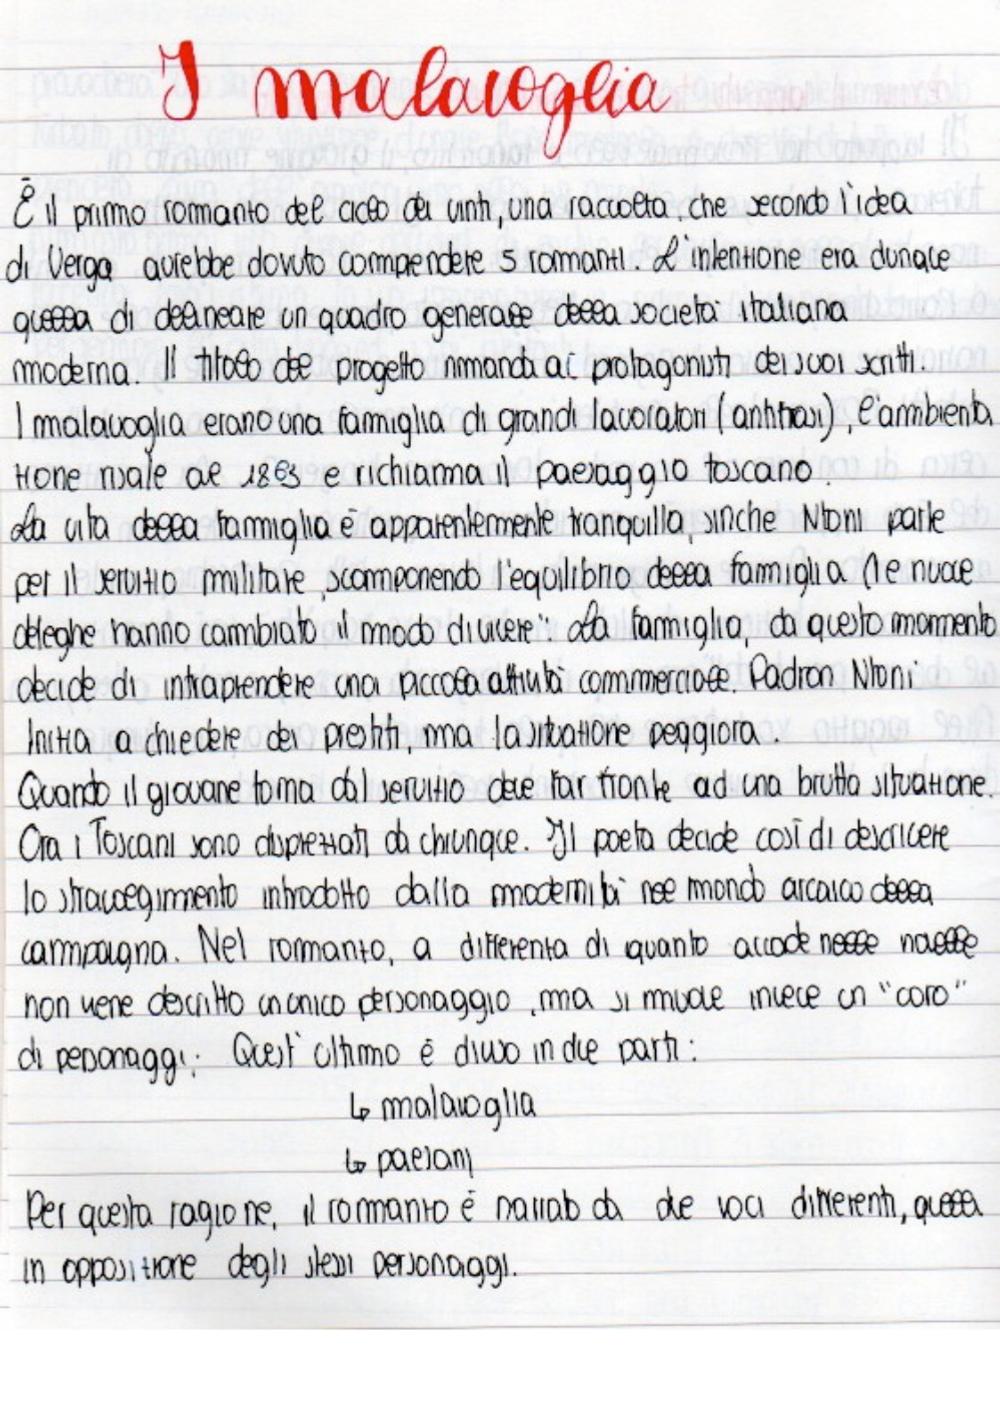 I malavoglia
È il primo romanzo del ciclo dei vinti, una raccolta, che secondo l'idea
di Verga avrebbe dovuto comprendere 5 romanzi. L'intenzione era dunque
quella di delineare un quadro generale della società italiana
moderna. Il titolo del progetto rimanda ai protagonisti dei suoi scritti.
I malavoglia erano una famiglia di grandi lavoratori (antitrasi), l'ambienta
zione risale al 1863 e richiama il paesaggio toscano.
La vita della famiglia è apparentemente tranquilla, sinche Ntoni parte
per il servizio militare, scomponendo l'equilibrio della famiglia (le nuove
deleghe hanno cambiato il modo di vivere". La famiglia, da questo momento
decide di intraprendere una piccola attività commerciale. Padron Ntoni
inizia a chiedere dei prestiti, ma la situazione peggiora.
Quando il giovane torna dal servizio deve far fronte ad una brutta situazione.
Ora i Toscani sono disprezzati da chiunque. Il poeta decide così di descrivere
lo stravolgimento introdotto dalla modernità nel mondo arcaico della
campagna. Nel romanzo, a differenza di quanto accade nelle novelle
non vene descritto un unico personaggio, ma si muove invece un "coro"
di personaggi. Quest'ultimo è diviso in due parti:
↳ malavoglia
↳ paesani
Per questa ragione, il romanzo è narrato da due voci differenti, quella
in opposizione degli stessi personaggi.